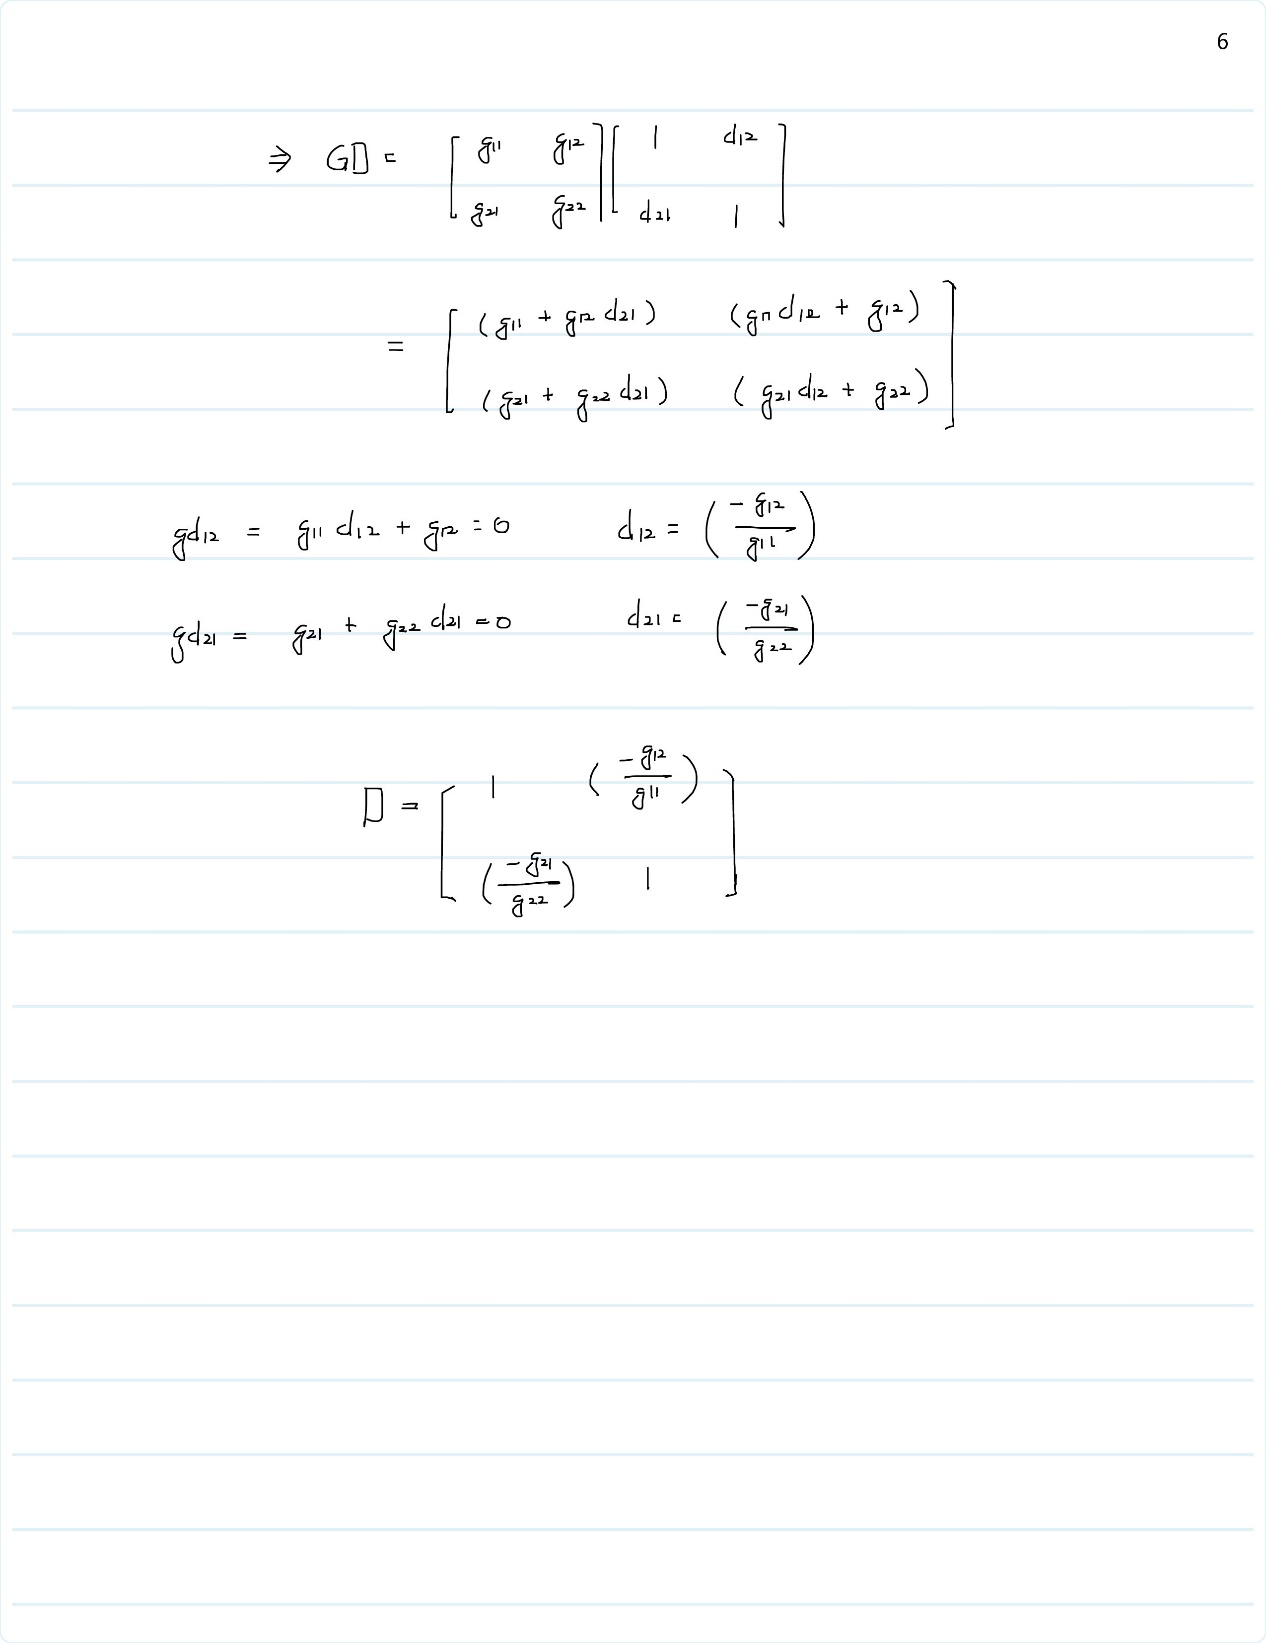 6
⇒ GD = [ g11 g12 ; g21 g22 ] [ 1 d12 ; d21 1 ]
= [ (g11 + g12 d21) (g11 d12 + g12) ; (g21 + g22 d21) (g21 d12 + g22) ]
gd12 = g11 d12 + g12 = 0 d12 = ( -g12 / g11 )
gd21 = g21 + g22 d21 = 0 d21 = ( -g21 / g22 )
D = [ 1 ( -g12 / g11 ) ; ( -g21 / g22 ) 1 ]